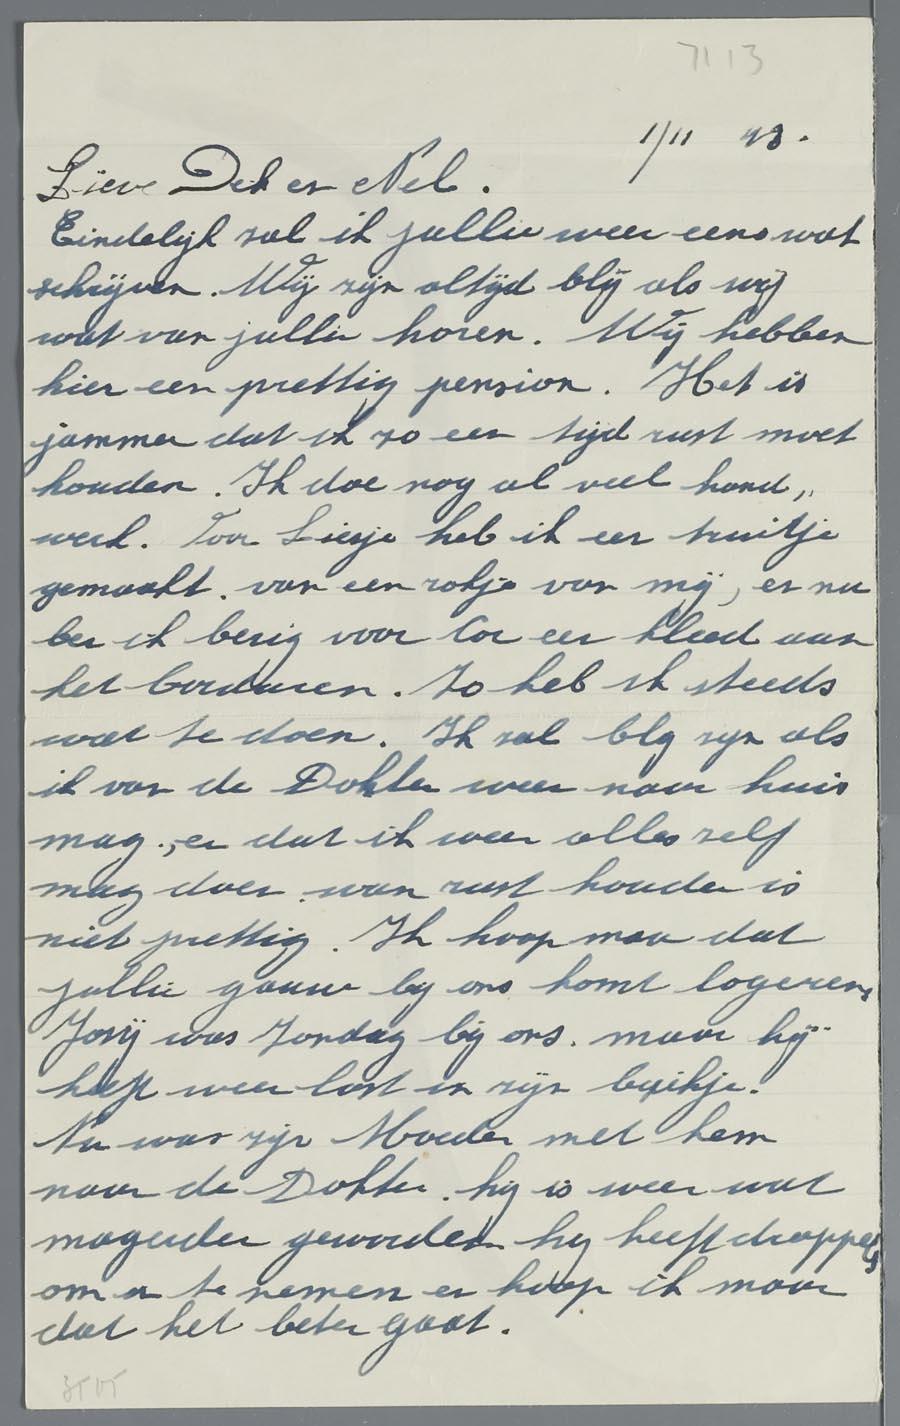 7113
1/11 43.
Lieve Dek en Nel.
Eindelijk zal ik jullie weer eens wat
schrijven. Wij zijn altijd blij als wij
wat van jullie horen. Wij hebben
hier een prettig pension. Het is
jammer dat ik zo een tijd rust moet
houden. Ik doe nog al veel hand„
werk. Voor Liesje heb ik een truitje
gemaakt. van een rokje van mij, en nu
ben ik bezig voor Cor een kleed aan
het borduren. Zo heb ik steeds
wat te doen. Ik zal blij zijn als
ik van de Dokter weer naar huis
mag., en dat ik weer alles zelf
mag doen. want rust houden is
niet prettig. Ik hoop maar dat
jullie gauw bij ons komt logeren,
Josij was Zondag bij ons. maar hij
heeft weer last in zijn buikje.
Nu was zijn Moeder met hem
naar de Dokter. hij is weer wat
magerder geworden hij heeft droppels
om in te nemen en hoop ik maar
dat het beter gaat.